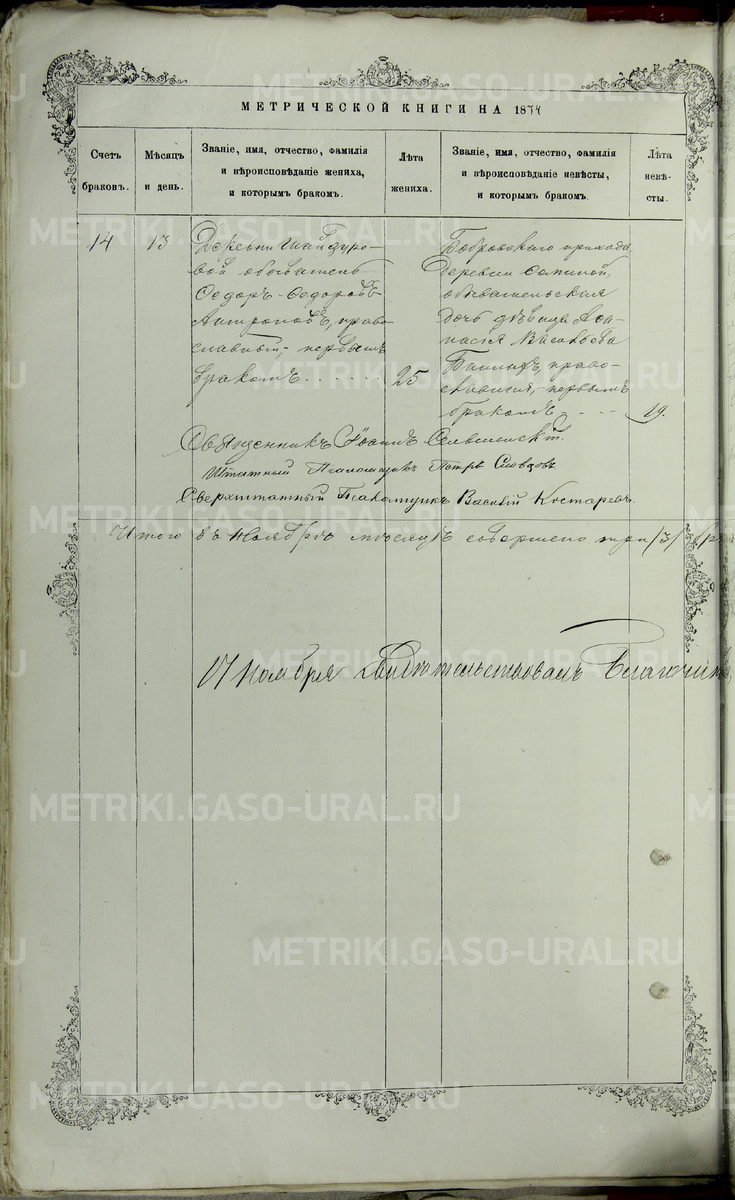 МЕТРИЧЕСКОЙ КНИГИ НА 1874
Счетъ браковъ.
Мѣсяцъ и день.
Званіе, имя, отчество, фамилія
и вѣроисповѣданіе жениха,
и которымъ бракомъ.
Лѣта жениха.
Званіе, имя, отчество, фамилія
и вѣроисповѣданіе невѣсты,
и которымъ бракомъ.
Лѣта невѣсты.
14
13
Деревни Шайдуро-
вой обыватель
Ѳедоръ Ѳедоровъ
Антроповъ, право-
славный, первымъ
бракомъ
25
Бобровскаго прихода,
деревни
обывательская
дочь дѣвица Аѳа-
насія Васильева
право-
славная, первымъ
бракомъ
19.
Священникъ
Штатный Псаломщикъ Петръ Словцовъ
Сверхштатный Псаломщикъ Василій Костаревъ.
Итого въ Ноябрѣ мѣсяцѣ совершено три /3/
17 Ноября Свидѣтельствовалъ
METRIKI.GASO-URAL.RU